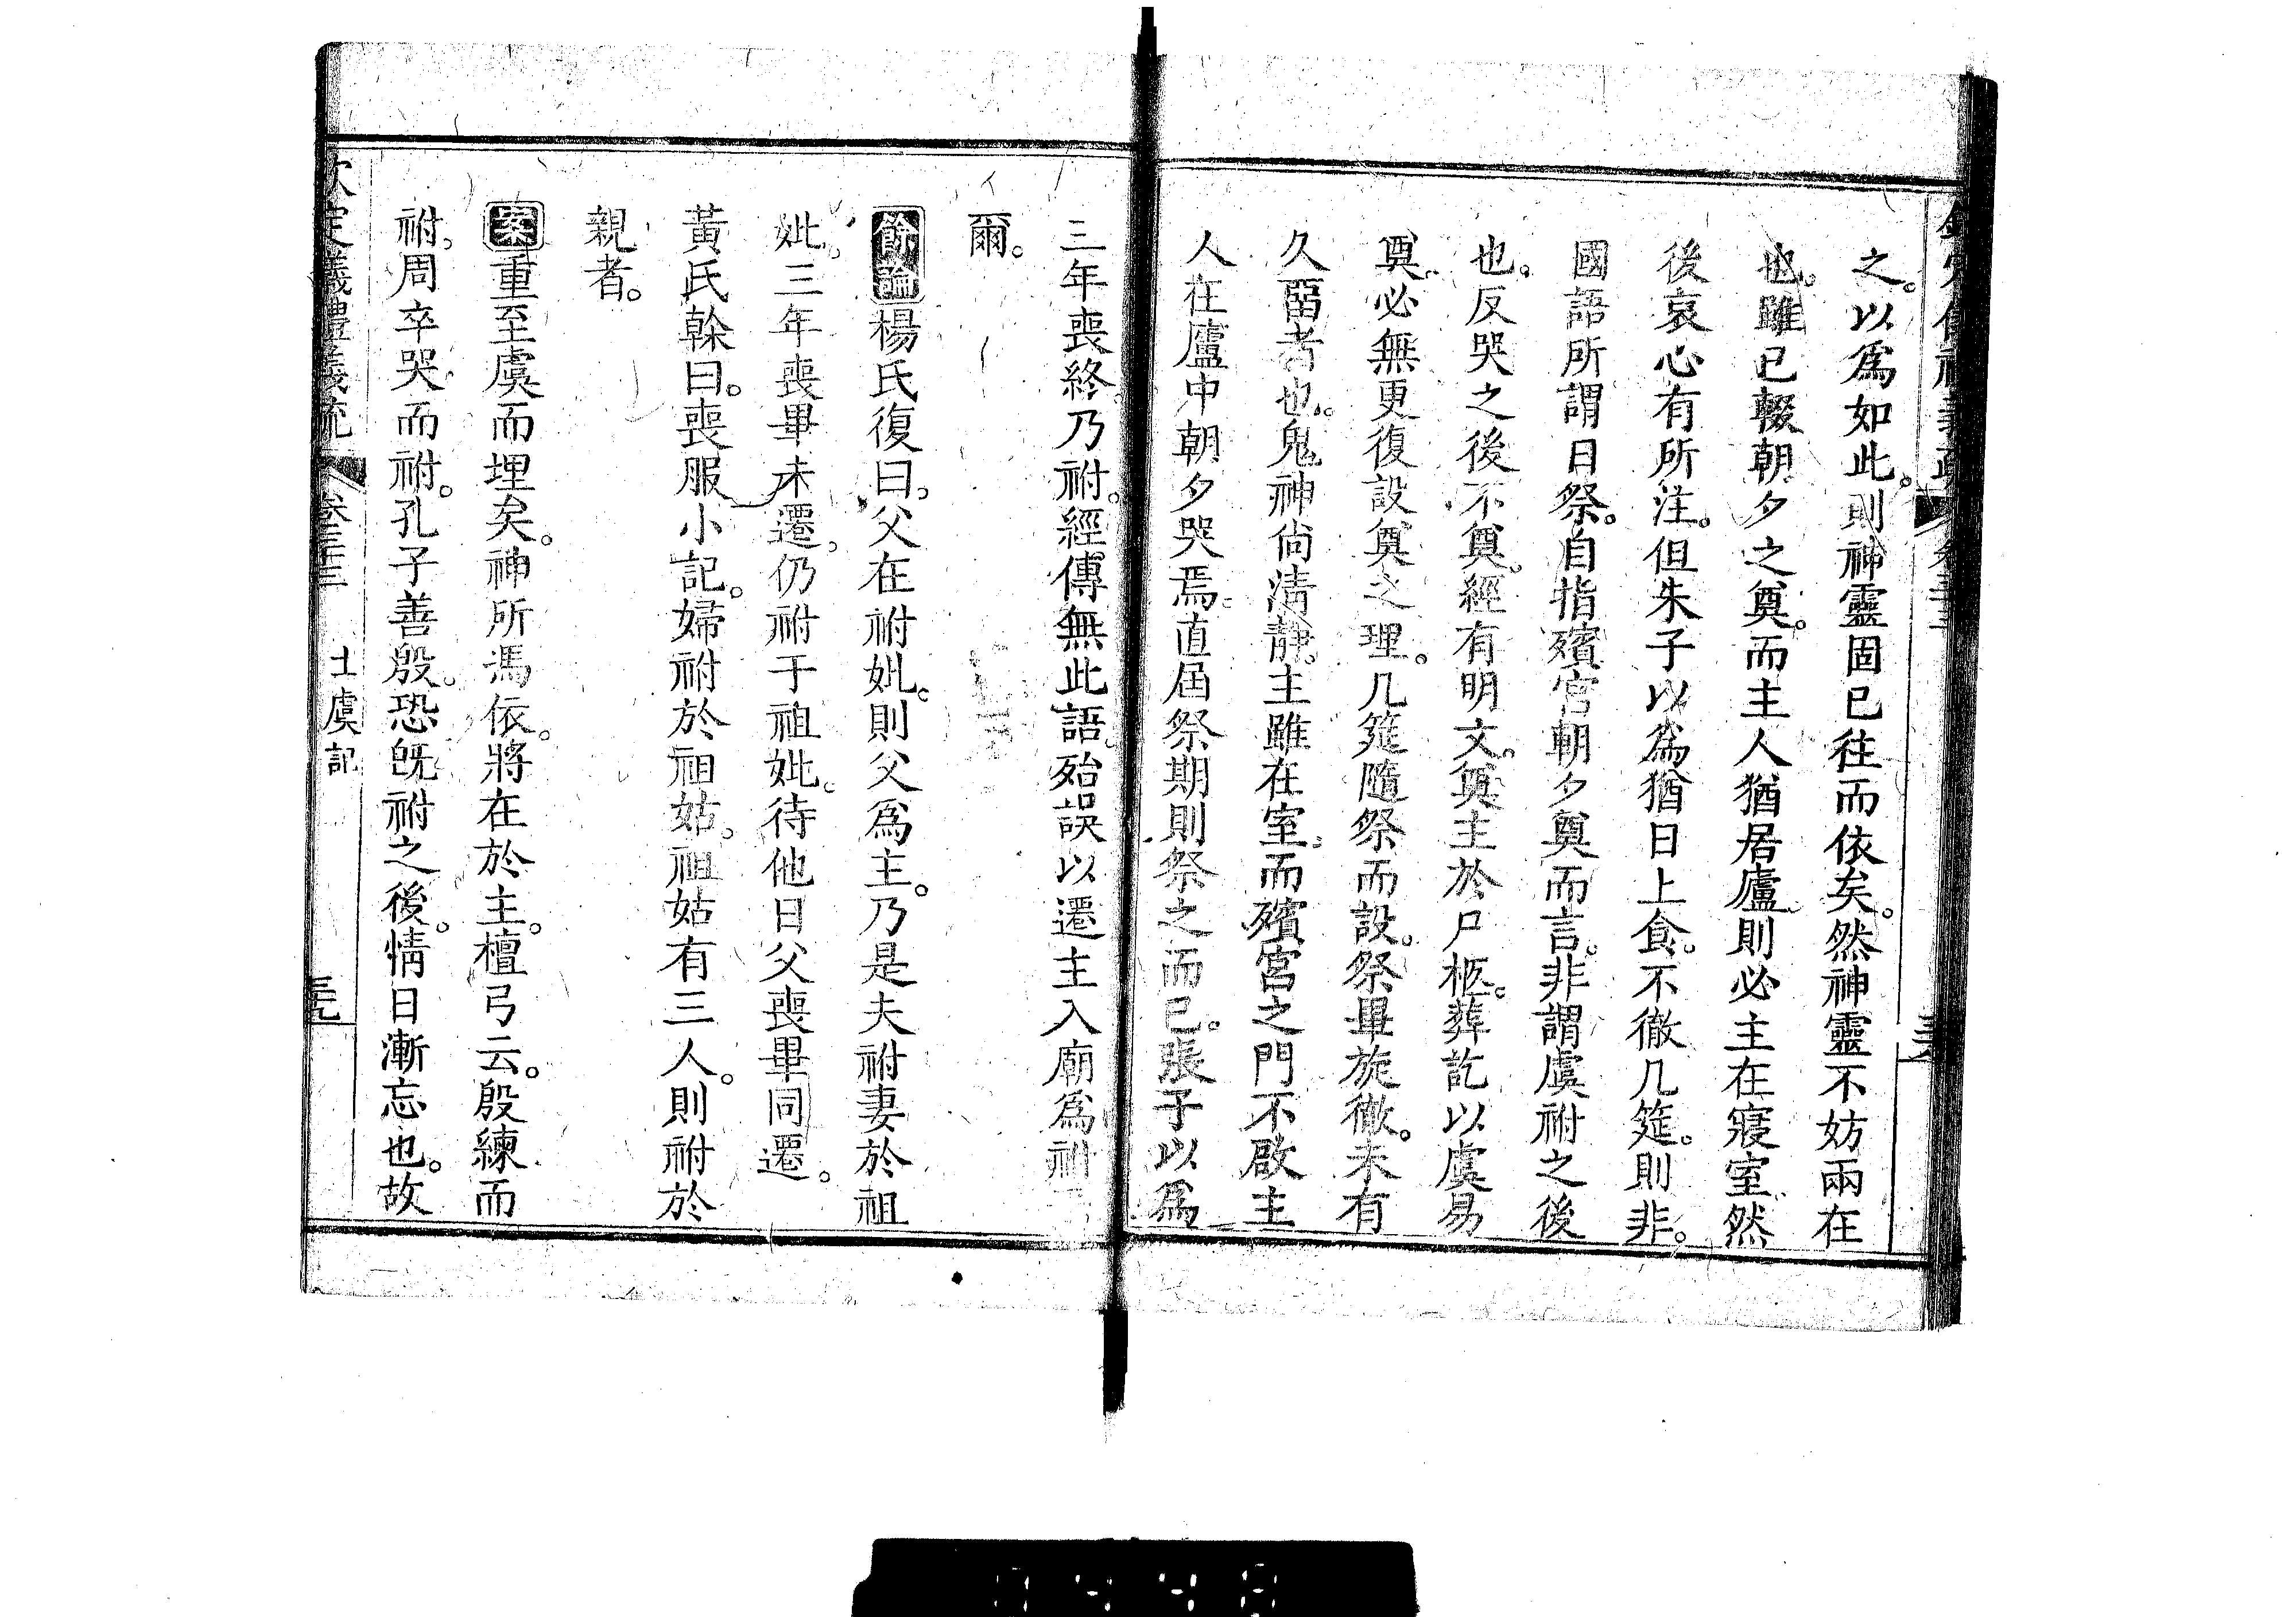 之。以爲如此。則神靈固已往而依矣。然神靈不妨兩在
也。雖已輟朝夕之奠。而主人猶居廬。則必主在寢室。然
後哀心有所注。但朱子以爲猶日上食。不徹几筵。則非。
國語所謂日祭。自指殯宮朝夕奠而言。非謂虞祔之後
也。反哭之後不奠。經有明文。奠主於尸柩。葬訖以虞易
奠。必無更復設奠之理。几筵隨祭而設。祭畢旋徹。未有
久畱者也。鬼神尙淸靜。主雖在室。而殯宮之門不啟。主
人在廬中朝夕哭焉。直屆祭期則祭之而已。張子以爲
三年喪終。乃祔。經傳無此語。殆誤以遷主入廟爲祔
爾。
餘論楊氏復曰。父在祔妣。則父爲主。乃是夫祔妻於祖
妣。三年喪畢未遷。仍祔于祖妣。待他日父喪畢同遷。
黃氏榦曰。喪服小記。婦祔於祖姑。祖姑有三人。則祔於
親者。
案重至虞而埋矣。神所馮依。將在於主。檀弓云。殷練而
祔。周卒哭而祔。孔子善殷。恐旣祔之後。情日漸忘也。故
欽定儀禮義疏 卷三十三 士虞記 三九